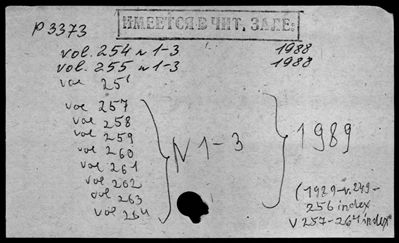 P 3373
ИМЕЕТСЯ В ЧИТ. ЗАЛЕ:
vol. 254 N 1-3 1988
vol. 255 N 1-3 1988
vol 25
vol 257
vol 258
vol 259
vol 260
vol 261
vol 262
vol 263
vol 264
N 1-3
1989
(1989-v. 249-
256 index
V 257-264 index